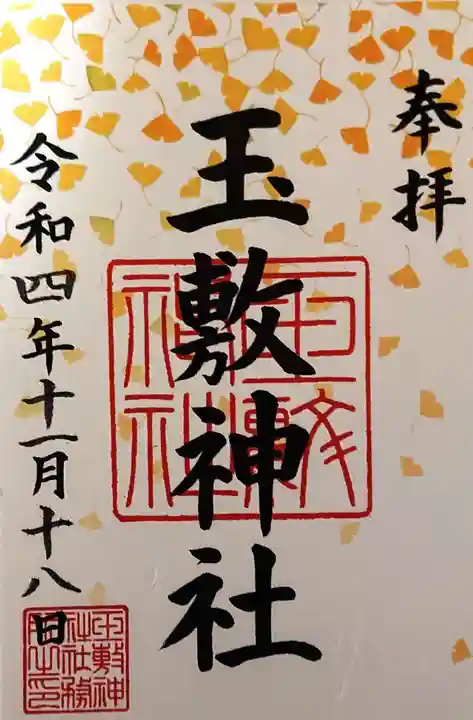 奉拝
玉敷神社
令和四年十一月十八日
玉敷神社
玉敷神社社務所之印